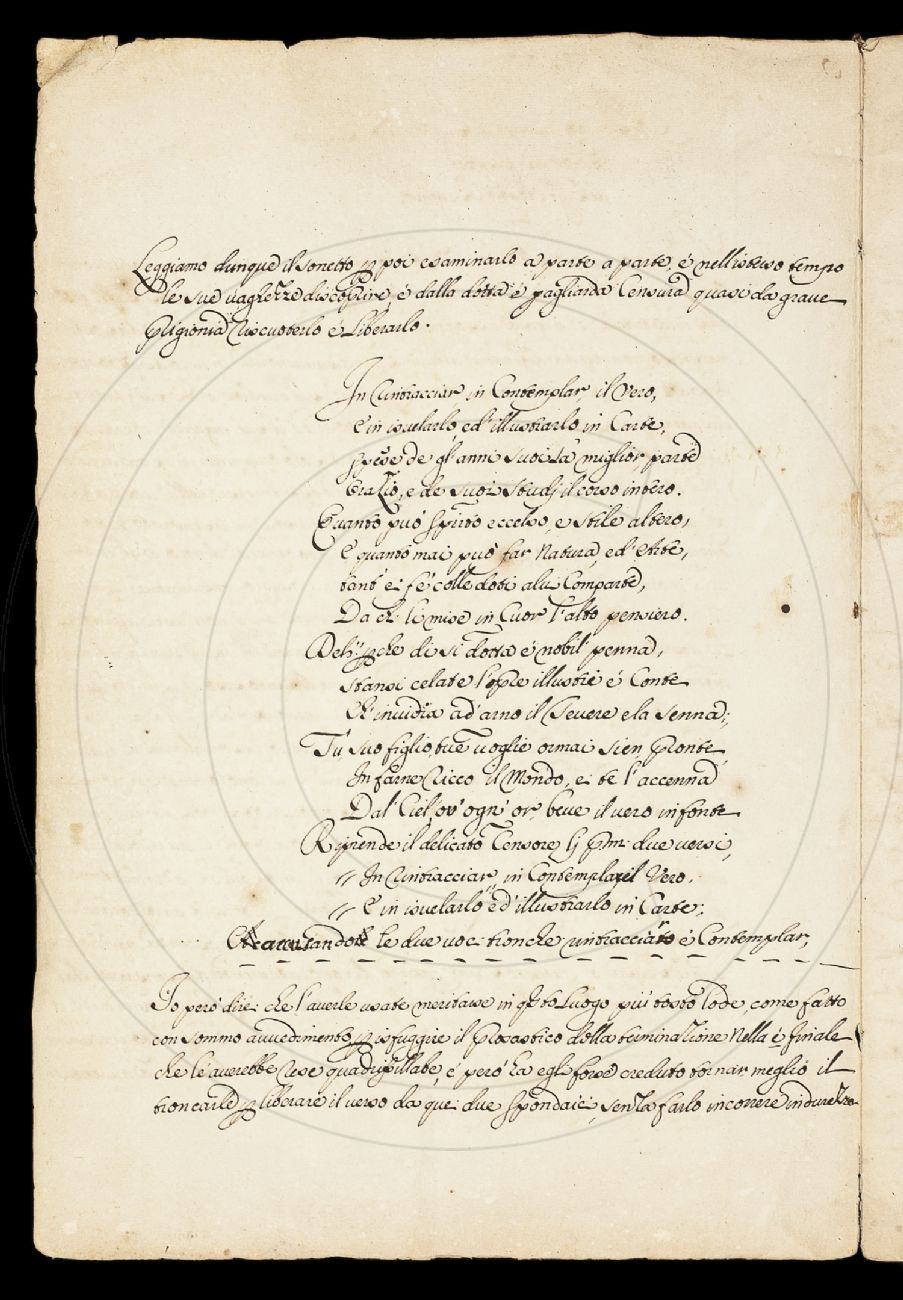 Leggiamo dunque il sonetto p poi esaminarlo a parte a parte, é nell'istesso tempo
le sue vaghezze discoprire, é dalla dotta é gagliarda Censura quasi da grave
Prigionia riscuoterlo é Liberarlo.
In rintracciar, in Contemplar, il Vero,
E in isvelarlo, ed' illustrarlo in Carte,
spese de gl'anni suoi la miglior parte
Orazio, e de suoi studj il corso intero.
Quanto può spirto eccelso, e stile altero,
E quanto mai può far Natura, ed' Arte,
tant' ei fé colle doti a lui Comparte,
Da ch' le mise in Cuor l'alto pensiero.
Deh! pche di si dotta é nobil penna,
stansi celate l'opre illustri é Conte
Ch' invidia ad' arno il Tevere e la senna;
Tù, suo figlio, tue voglie ormai sien Pronte
In farne ricco il Mondo, ei te l'accenna
Dal' Ciel, ov' ogn' or, beve il vero in fonte
Riprende il delicato Censore li Pmi due versi,
In rintracciar, in Contemplar il Vero,
E in isvelarlo, ed' illustrarlo in Carte;
Accusando le due voci tronche rintracciar é Contemplar;
Io però direi che l'averle usate meritasse in qto Luogo più tosto lode, come fatto
con sommo avvedimento, p isfuggire il Prosastico della terminazione Nella é finale
che le averebbe rese quadrisillabe, é però ha egli forse creduto tornar meglio il
troncarle p liberare il verso da quei due spondaici, senza farlo incorrere in durezza